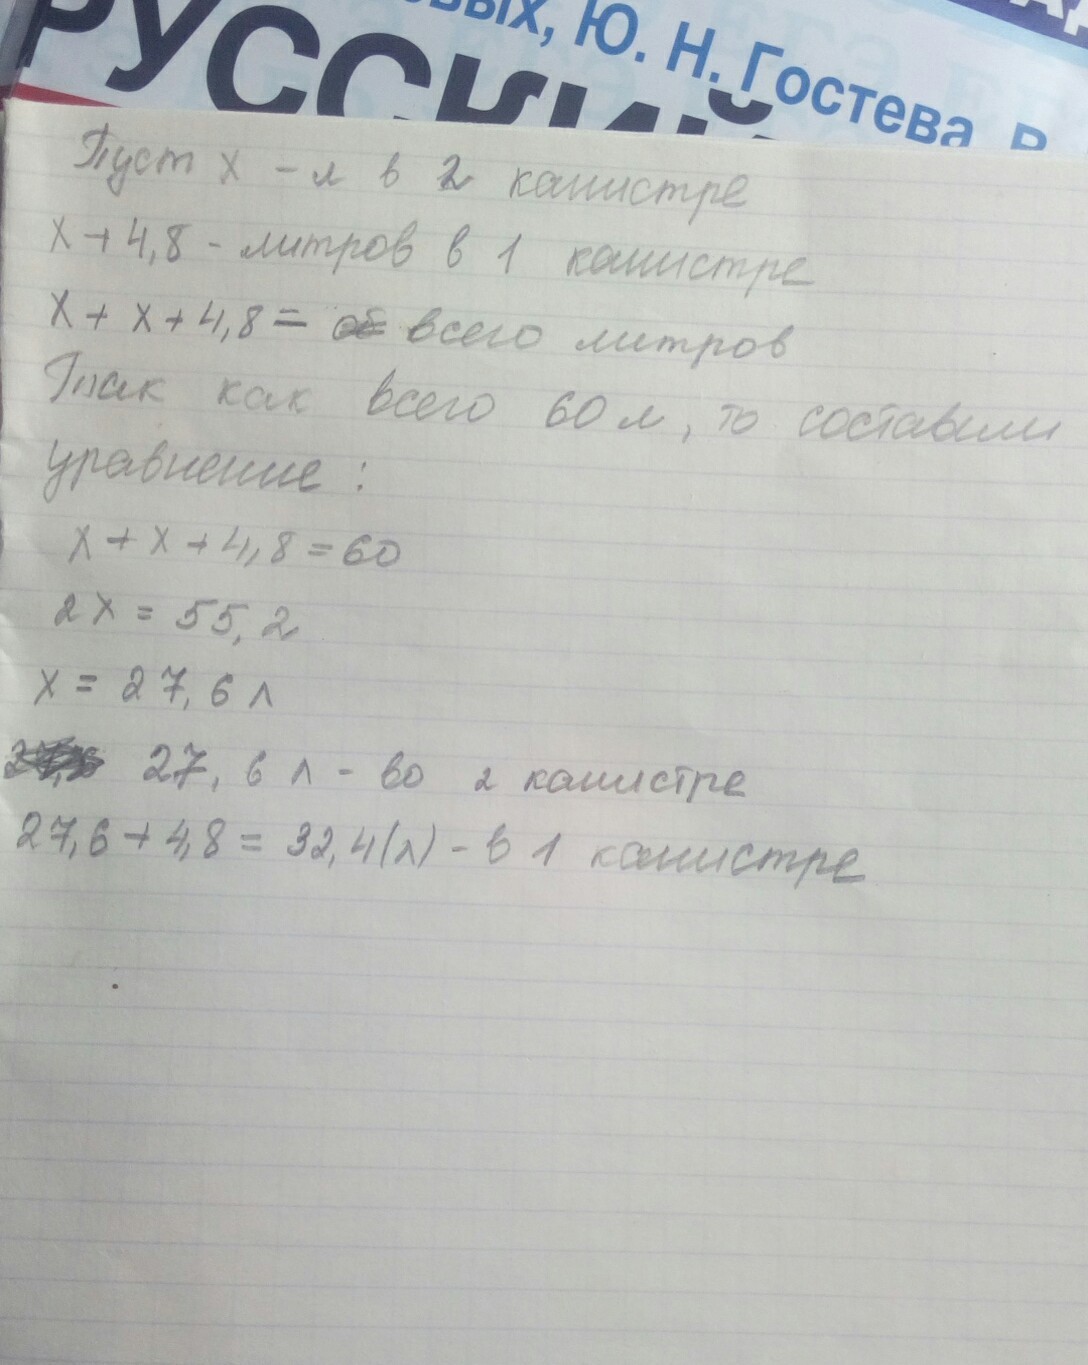 овых, Ю. Н. Гостева,
РУССКИЙ
Пуст x - л в 2 канистре
x + 4,8 - литров в 1 канистре
x + x + 4,8 = всего литров
Так как всего 60 л, то составим
уравнение:
x + x + 4,8 = 60
2x = 55,2
x = 27,6 л
27,6 л - во 2 канистре
27,6 + 4,8 = 32,4(л) - в 1 канистре